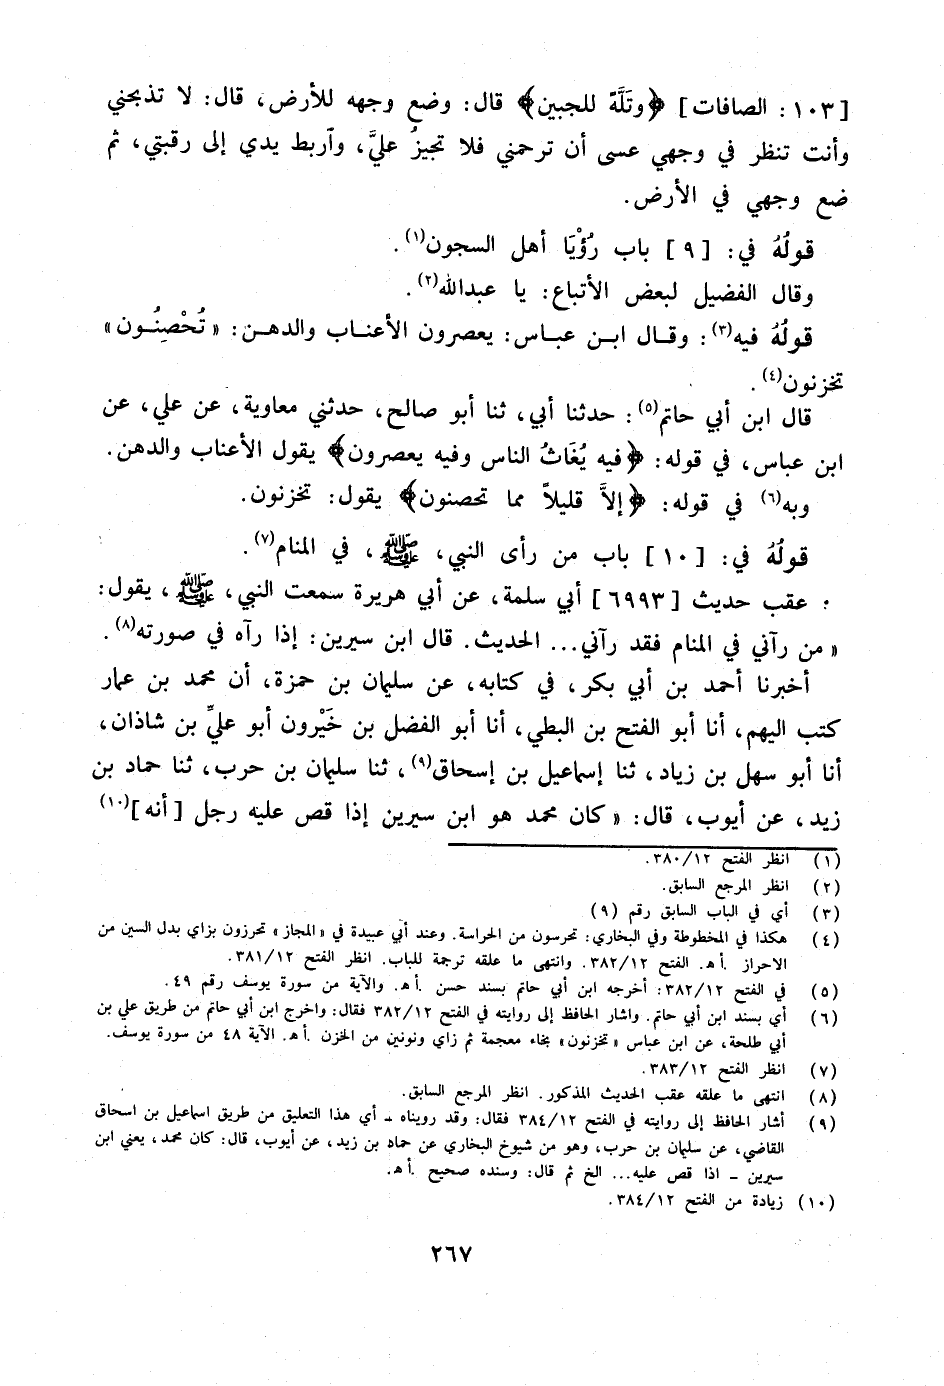 [١٠٣: الصافات] ﴿وتَلَّهُ للجبين﴾ قال: وضع وجهه للأرض، قال: لا تذبحني
وأنت تنظر في وجهي عسى أن ترحمني فلا تجيزُ عليَّ، وآربط يدي إلى رقبتي، ثم
ضع وجهي في الأرض.
قولُهُ في: [٩] باب رُؤْيَا أهل السجون(١).
وقال الفضيل لبعض الأتباع: يا عبدالله(٢).
قولُهُ فيه(٣): وقال ابن عباس: يعصرون الأعناب والدهن: «تُحْصِنُون»
تخزنون(٤).
قال ابن أبي حاتم(٥): حدثنا أبي، ثنا أبو صالح، حدثني معاوية، عن علي، عن
ابن عباس، في قوله: ﴿فيه يُغَاثُ الناس وفيه يعصرون﴾ يقول الأعناب والدهن.
وبه(٦) في قوله: ﴿إلاَّ قليلاً مما تحصنون﴾ يقول: تخزنون.
قولُهُ في: [١٠] باب من رأى النبي، ﷺ، في المنام(٧).
عقب حديث [٦٩٩٣] أبي سلمة، عن أبي هريرة سمعت النبي، ﷺ، يقول:
«من رآني في المنام فقد رآني... الحديث. قال ابن سيرين: إذا رآه في صورته(٨).
أخبرنا أحمد بن أبي بكر، في كتابه، عن سليمان بن حمزة، أن محمد بن عمار
كتب اليهم، أنا أبو الفتح بن البطي، أنا أبو الفضل بن خَيْرون أبو عليِّ بن شاذان،
أنا أبو سهل بن زياد، ثنا إسماعيل بن إسحاق(٩)، ثنا سليمان بن حرب، ثنا حماد بن
زيد، عن أيوب، قال: «كان محمد هو ابن سيرين إذا قص عليه رجل [أنه](١٠)
(١) انظر الفتح ٣٨٠/١٢.
(٢) انظر المرجع السابق.
(٣) أي في الباب السابق رقم (٩)
(٤) هكذا في المخطوطة وفي البخاري: تحرسون من الحراسة. وعند أبي عبيدة في «المجاز» تحرزون بزاي بدل السين من
الاحراز .أ هـ. الفتح ٣٨٢/١٢. وانتهى ما علقه ترجمة للباب. انظر الفتح ٣٨١/١٢.
(٥) في الفتح ٣٨٢/١٢: أخرجه ابن أبي حاتم بسند حسن .أ هـ. والآية من سورة يوسف رقم ٤٩.
(٦) أي بسند ابن أبي حاتم. واشار الحافظ إلى روايته في الفتح ٣٨٢/١٢ فقال: واخرج ابن أبي حاتم من طريق علي بن
أبي طلحة، عن ابن عباس «تخزنون» بخاء معجمة ثم زاي ونونين من الخزن .أ هـ. الآية ٤٨ من سورة يوسف.
(٧) انظر الفتح ٣٨٣/١٢.
(٨) انتهى ما علقه عقب الحديث المذكور. انظر المرجع السابق.
(٩) أشار الحافظ إلى روايته في الفتح ٣٨٤/١٢ فقال: وقد رويناه ـ أي هذا التعليق من طريق اسماعيل بن اسحاق
القاضي، عن سليمان بن حرب، وهو من شيوخ البخاري عن حماد بن زيد، عن أيوب، قال: كان محمد، يعني ابن
سيرين ـ اذا قص عليه... الخ ثم قال: وسنده صحيح .أ هـ.
(١٠) زيادة من الفتح ٣٨٤/١٢.
٢٦٧